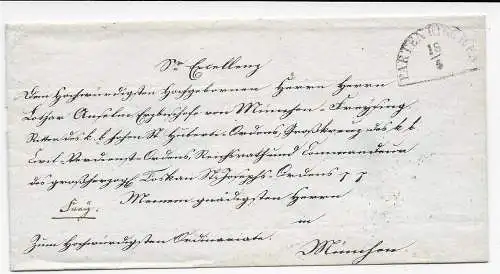 PARTENKIRCHEN
18/4
Sr Excellenz
Den Hochwürdigsten Hochgebornen Herrn Herrn
Lothar Anselm Erzbischofe von München-Freysing
Ritter des k. b. hohen St. Huberts-Ordens, Großkreuz des k. b.
Civil-Verdienst-Ordens, Reichsrath und Commandeur
des großherzogl. Toskan St. Josephs-Ordens p p
Meinem gnädigsten Herrn
in
Zum Hochwürdigsten Ordinariate.
München.